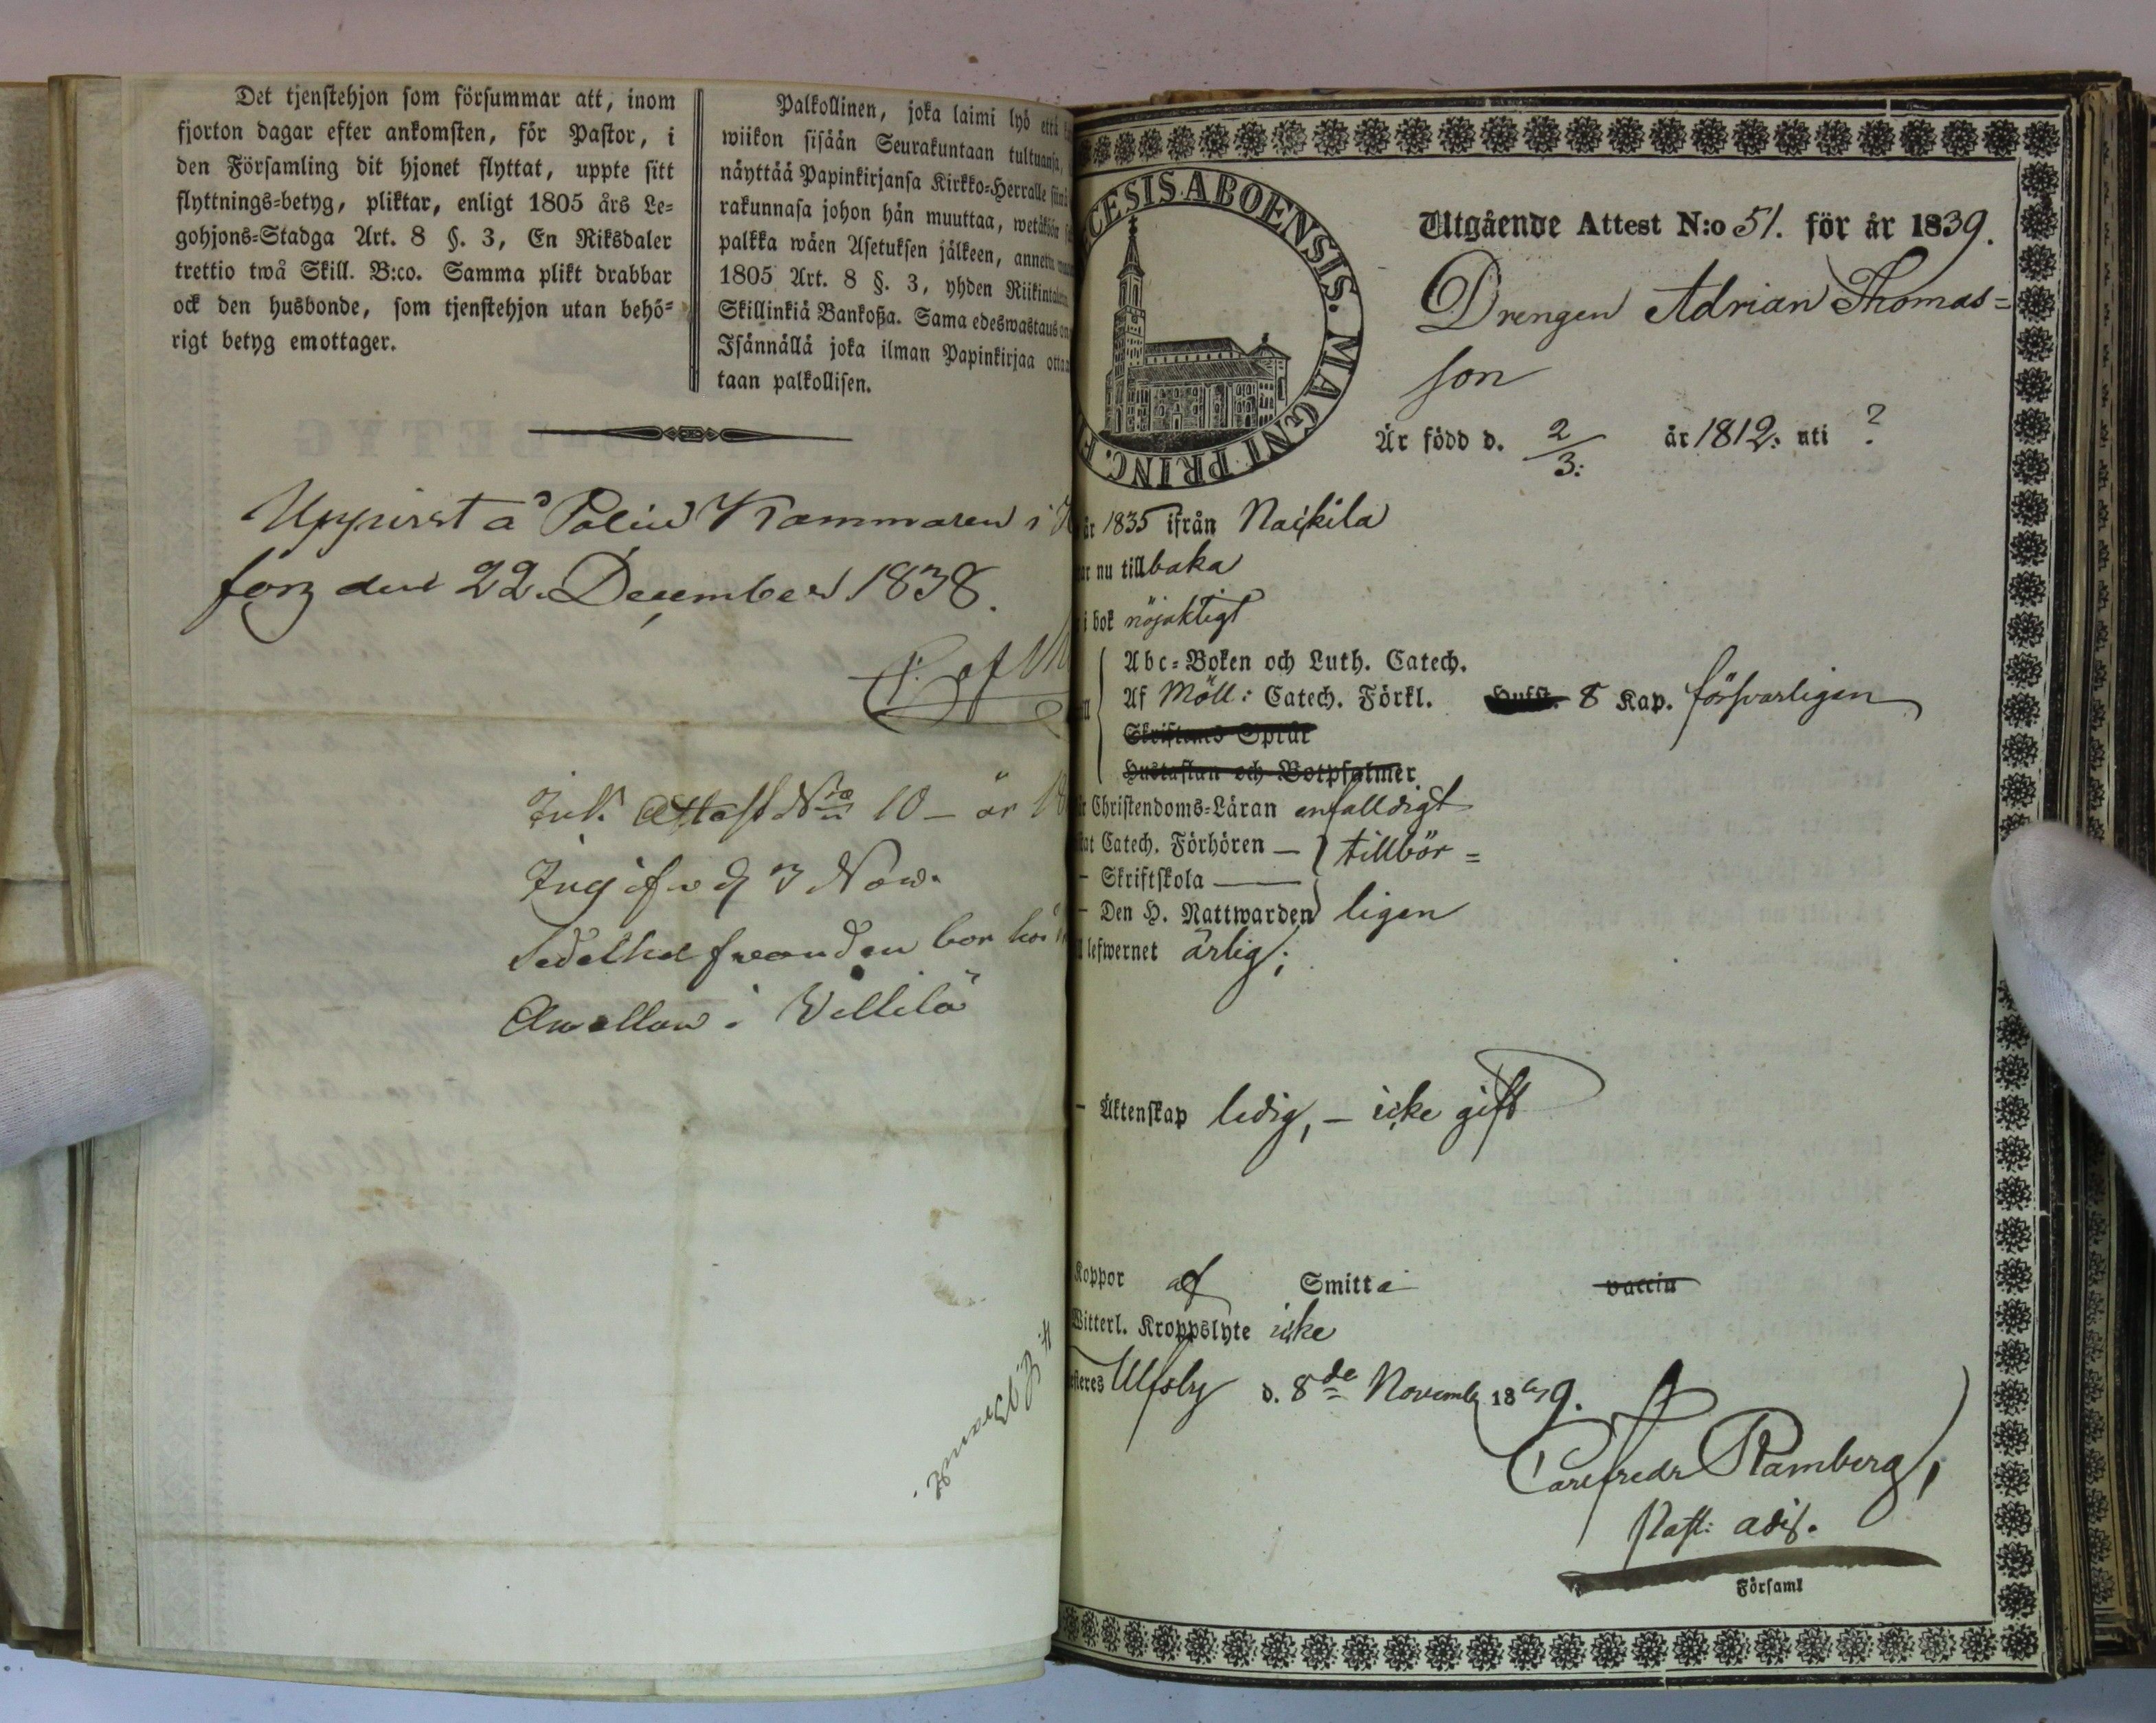 Det tjenstehjon som försummar att, inom
fjorton dagar efter ankomsten, för Pastor, i
den Församling dit hjonet flyttat, uppte sitt
flyttnings-betyg, pliktar, enligt 1805 års Le-
gohjons-Stadga Art. 8 §. 3, En Riksdaler
trettio twå Skill. B:co. Samma plikt drabbar
ock den husbonde, som tjenstehjon utan behö-
rigt betyg emottager.
Palkollinen, joka laimi lyö että
wiikon sisään Seurakuntaan tultuansa,
näyttää Papinkirjansa Kirkko-Herralle
rakunnasa johon hän muuttaa, wetäköön
palkka wäen Asetuksen jälkeen, annettu
1805 Art. 8 §. 3, yhden Riikintalerin
Skillinkiä Bankossa. Sama edeswastaus on
Isännällä joka ilman Papinkirjaa ottaa
taan palkollisen.
Uppvist å Police Kammaren i
fors den 22. December 1838.
P. af
Ink. Attest No 10 - år
Ing ifr d 3 Nov.
bor hos
i Villilä
CESIS ABOENSIS. MAGNI PRINC. F
Utgående Attest N:o 51. för år 1839.
Drengen Adrian Thomas=
son
Är född d. 2/3: år 1812: uti ?
år 1835 ifrån Nackila
nu tillbaka
i bok nöjaktigt
Abc-Boken och Luth. Catech.
Af Möll: Catech. Förkl. Hufst. 8 Kap. försvarligen
Skriftenes Språk
Hustaflan och Botpsalmer
Christendoms-Läran enfalldigt
Catech. Förhören — } tillbör=
- Skriftskola —
- Den H. Nattwarden } ligen
lefwernet ärlig;
- Äktenskap ledig, - icke gift
Koppor af Smitta vaccin
Witterl. Kroppslyte icke
Ulfsby d. 8de Novemb 1839.
Carl Fredr Ramberg,
Past: adj.
Församl